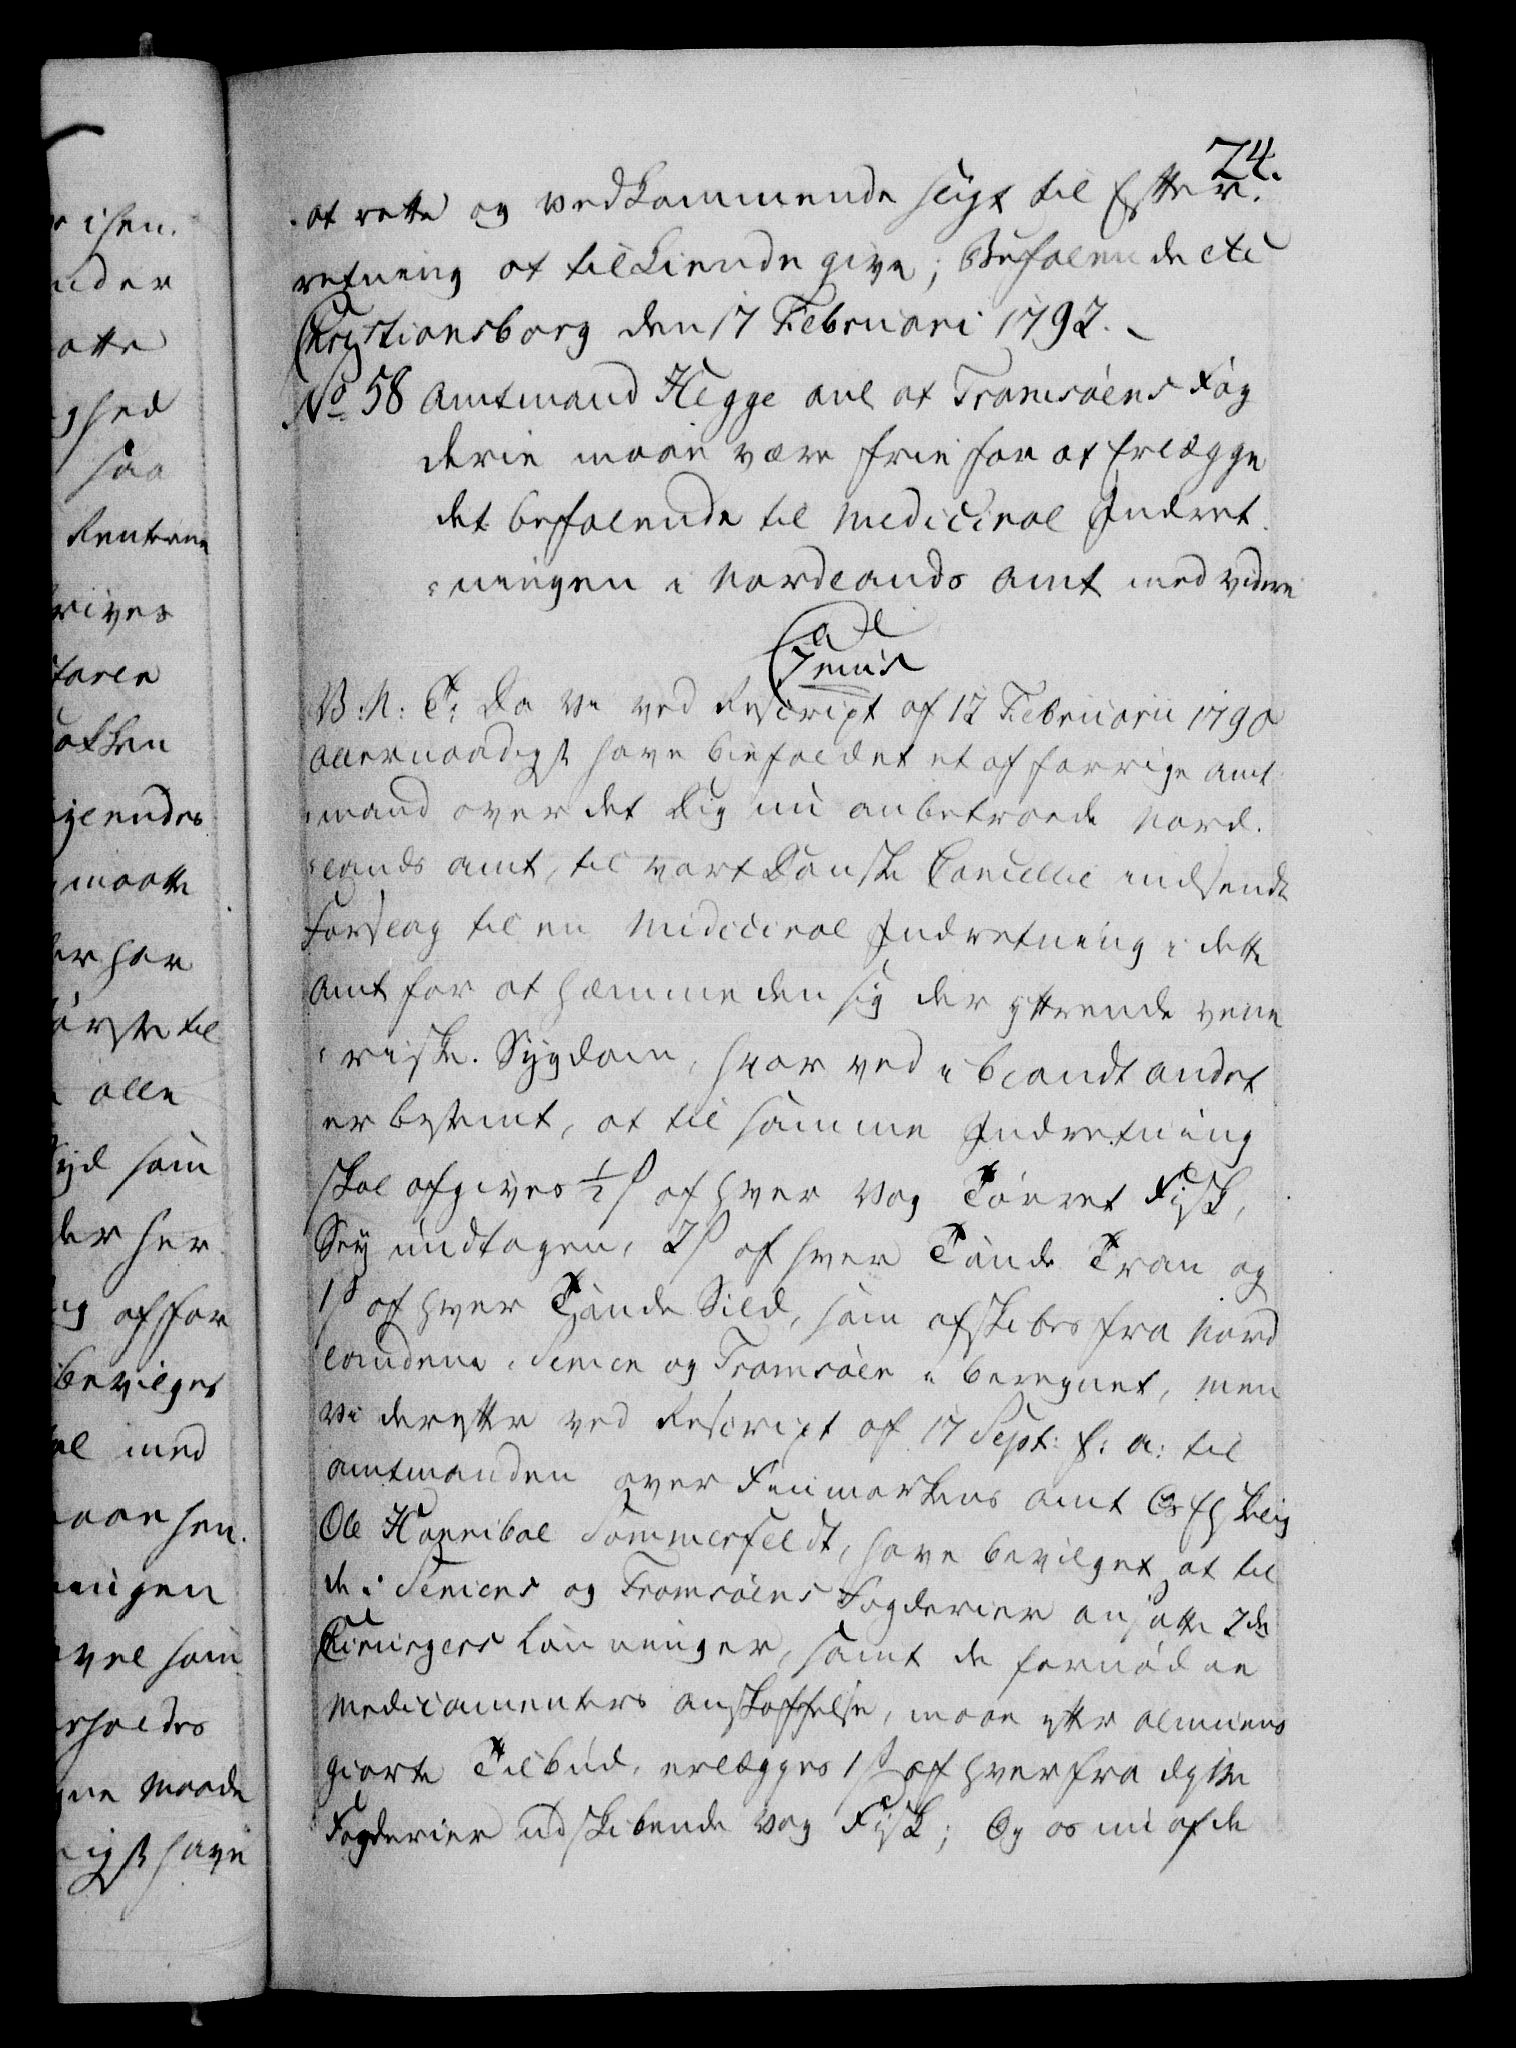 24.
at rette og vedkommende sligt til Efter-
retning at tilkiende give; Befalende etc
Christiansborg den 17 Februari 1792.
No 58 Amtmand Hegge anl at Tromsøens Fog
derie maae være frie for at erlægge
det befalende til Medicinal Indret-
ningen i Nordlands Amt med videre
C 7mus
V: M: T: Da Vi ved Rescript af 12 Februarii 1790
Allernaadigst have befalet et af forrige Amt
mand over det Dig nu anbetroede Nord-
lands Amt, til vort Danske Cancellie indsendt
Forslag til en Medicinal Indretning i dette
Amt for at hæmme den sig der yttrende vene
riske Sygdom, hvor ved iblandt andet
er bestemt, at til samme Indretning
skal afgives ½ ß af hver Vog Tørret Fisk,
Sey undtagen, 2 ß af hver Tønde Tran og
1 ß af hver Tønde Sild, som afskibes fra Nord
landene, Senien og Tromsøen iberegnet, men
Vi derefter ved Rescript af 17 Sept: s: a: til
Amtmanden over Finmarkens Amt Os Elskelig
Ole Hannibal Sommerfeldt, have bevilget, at til
de i Seniens og Tromsøens Fogderier ansatte 2de
Chirurgers Lønninger, samt de fornødne
Medicamenters anskaffelse, maae efter Almuens
giorte Tilbud, erlægges 1 ß af hver fra disse
Fogderier udskibende Vog Fisk; Og os nu af de